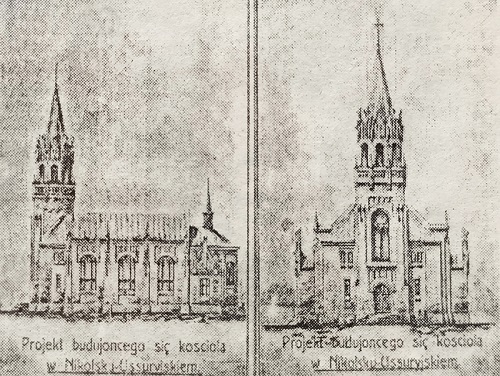 Projekt budujoncego się kosciola
w Nikolsku-Ussuryjskiem.
Projekt budujoncego się kosciola
w Nikolsku-Ussuryjskiem.